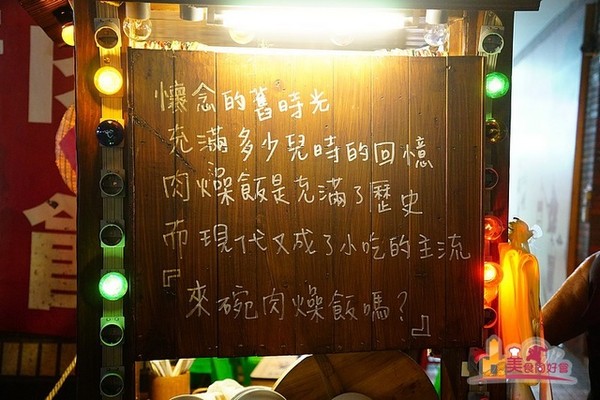 懷念的舊時光
充滿多少兒時的回憶
肉燥飯是充滿了歷史
而現代又成了小吃的主流
『來碗肉燥飯嗎?』
美食好會